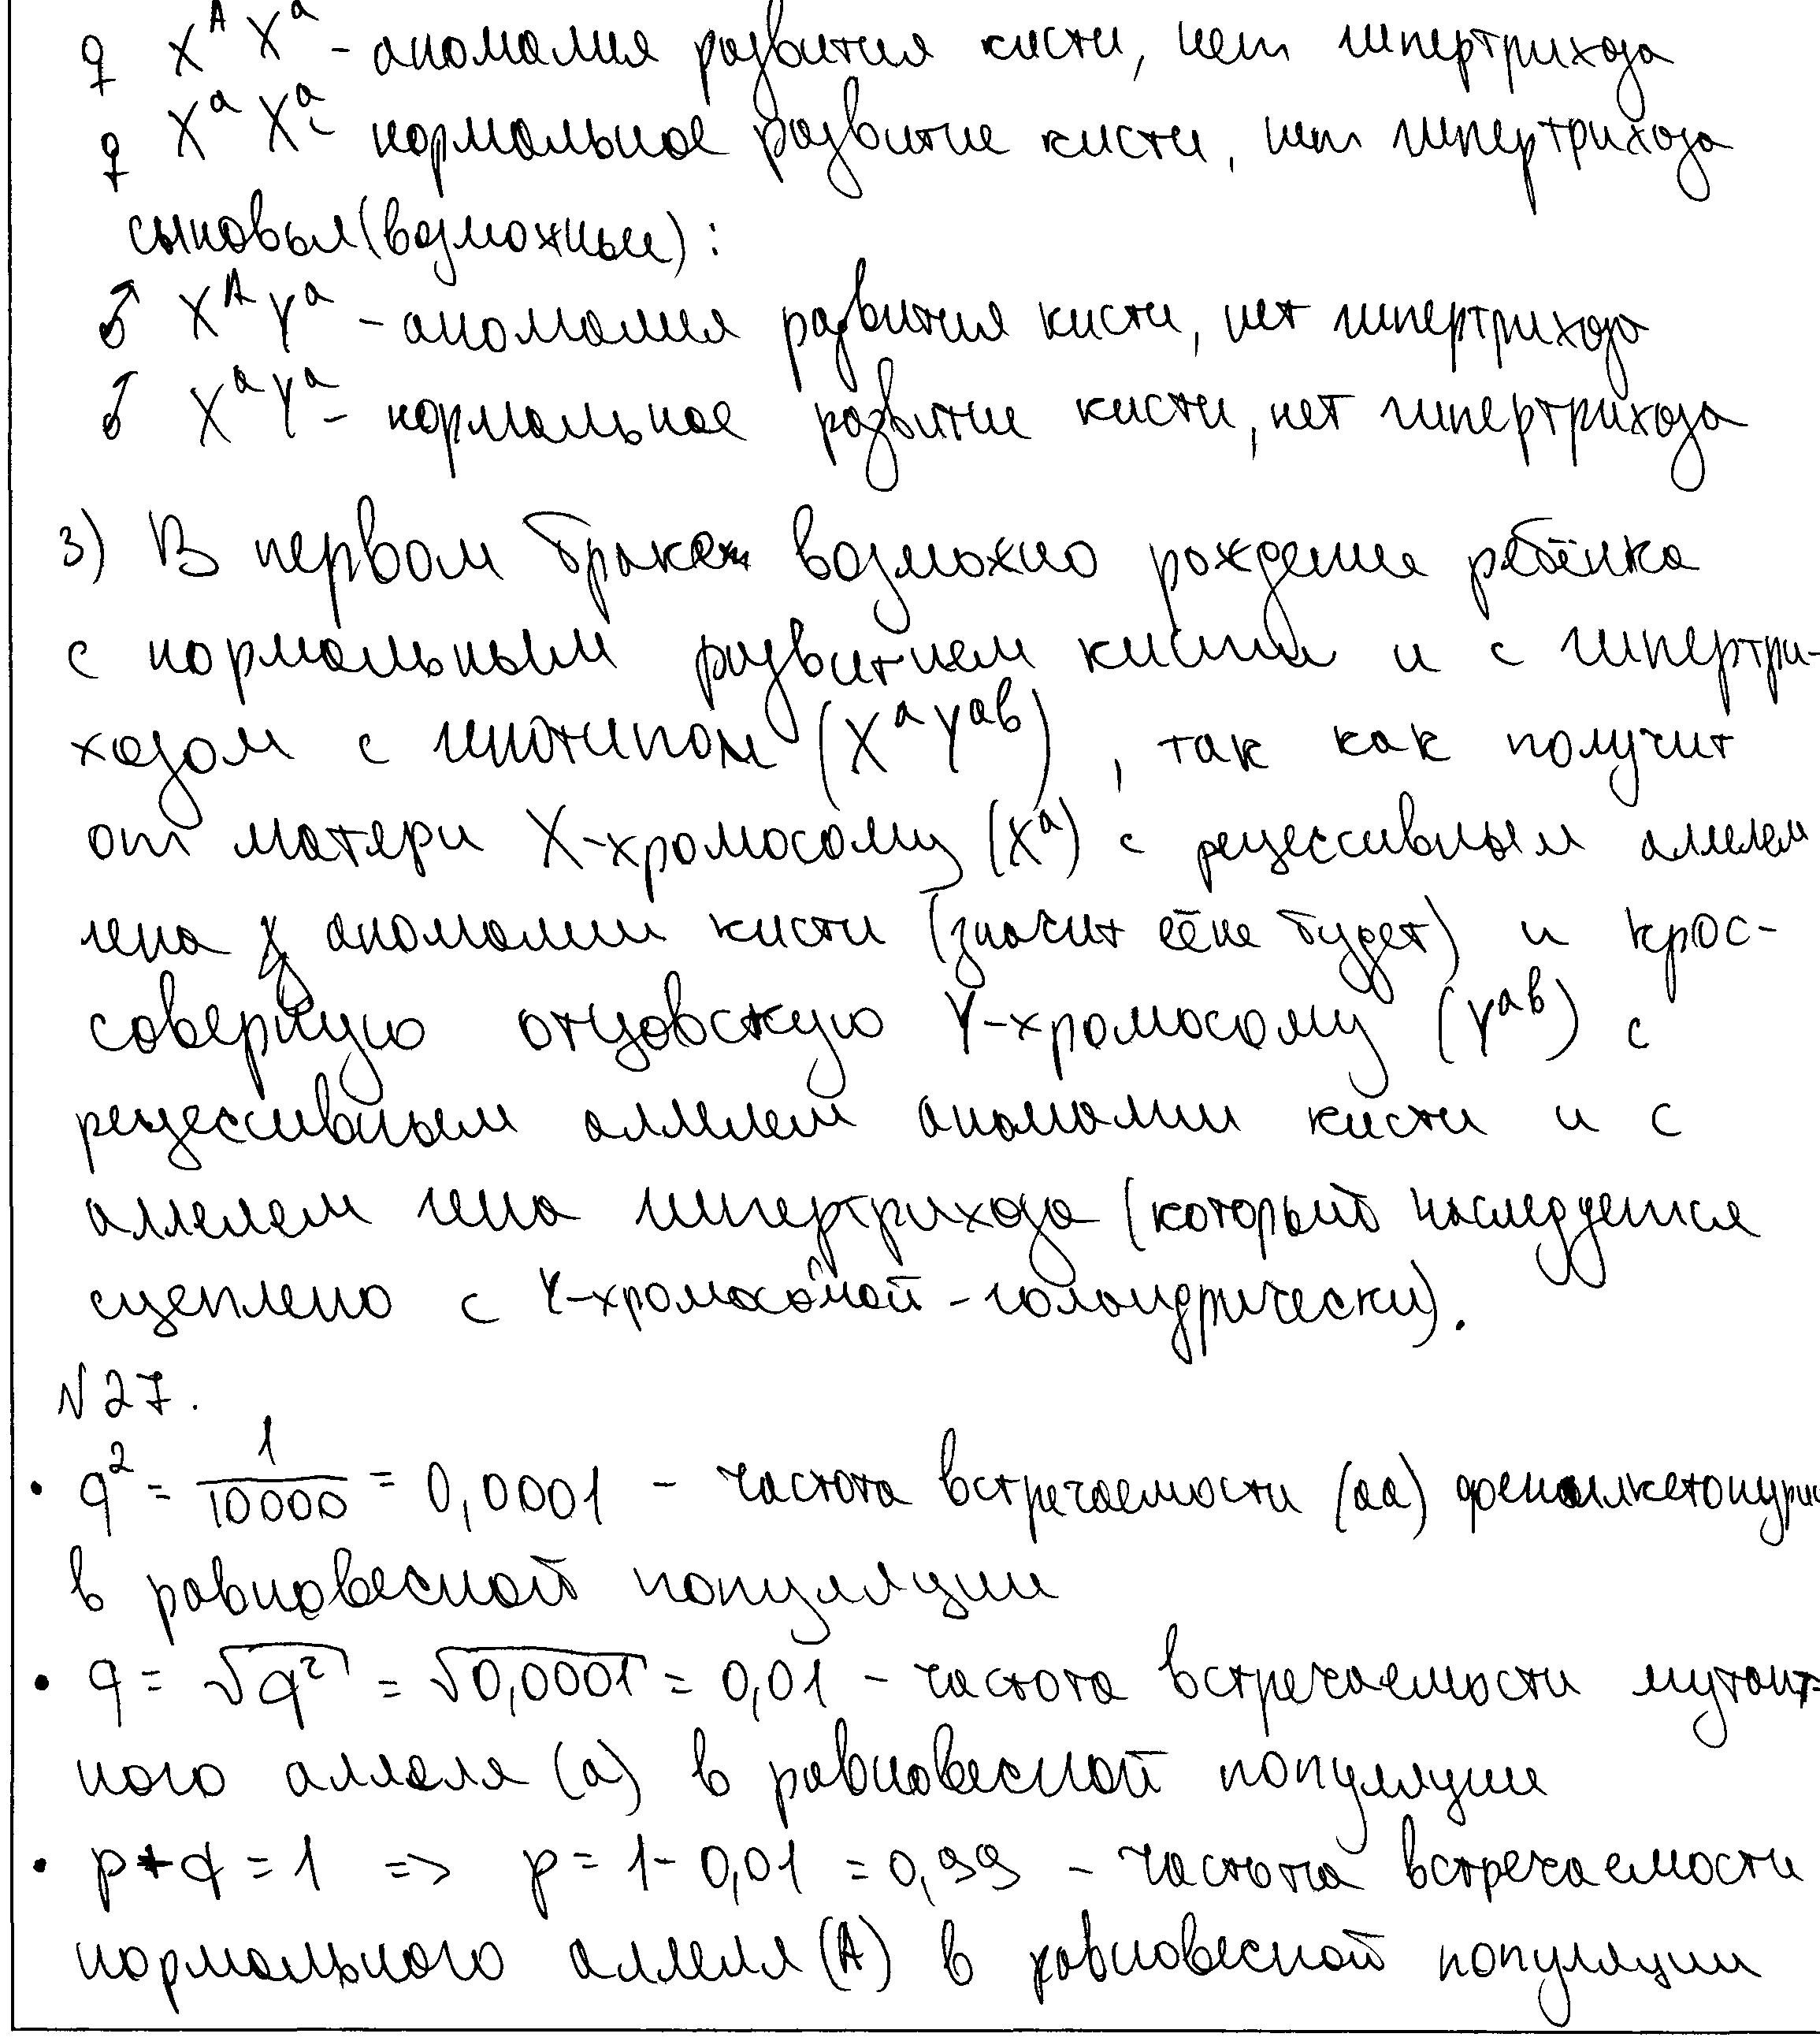 ♀ XᴬXᵃ - аномалия развития кисти, нет гипертрихоза
♀ XᵃXᵃ - нормальное развитие кисти, нет гипертрихоза
сыновья (возможные):
♂ XᴬYᵃ - аномалия развития кисти, нет гипертрихоза
♂ XᵃYᵃ - нормальное развитие кисти, нет гипертрихоза
3) В первом браке возможно рождение ребёнка
с нормальным развитием кисти и с гипертри-
хозом с генотипом (XᵃYᵃᵇ), так как получит
от матери X-хромосому (Xᵃ) с рецессивным аллелем
гена аномалии кисти (значит её не будет) и крос-
соверную отцовскую Y-хромосому (Yᵃᵇ) с
рецессивным аллелем аномалии кисти и с
аллелем гена гипертрихоза (который наследуется
сцеплено с Y-хромосомой - голандрически).
№27.
• q² = 1/10000 = 0,0001 - частота встречаемости (аа) фенилкетонурии
в равновесной популяции
• q = √q² = √0,0001 = 0,01 - частота встречаемости мутант-
ного аллеля (а) в равновесной популяции
• p+q = 1 => p = 1 - 0,01 = 0,99 - частота встречаемости
нормального аллеля (А) в равновесной популяции